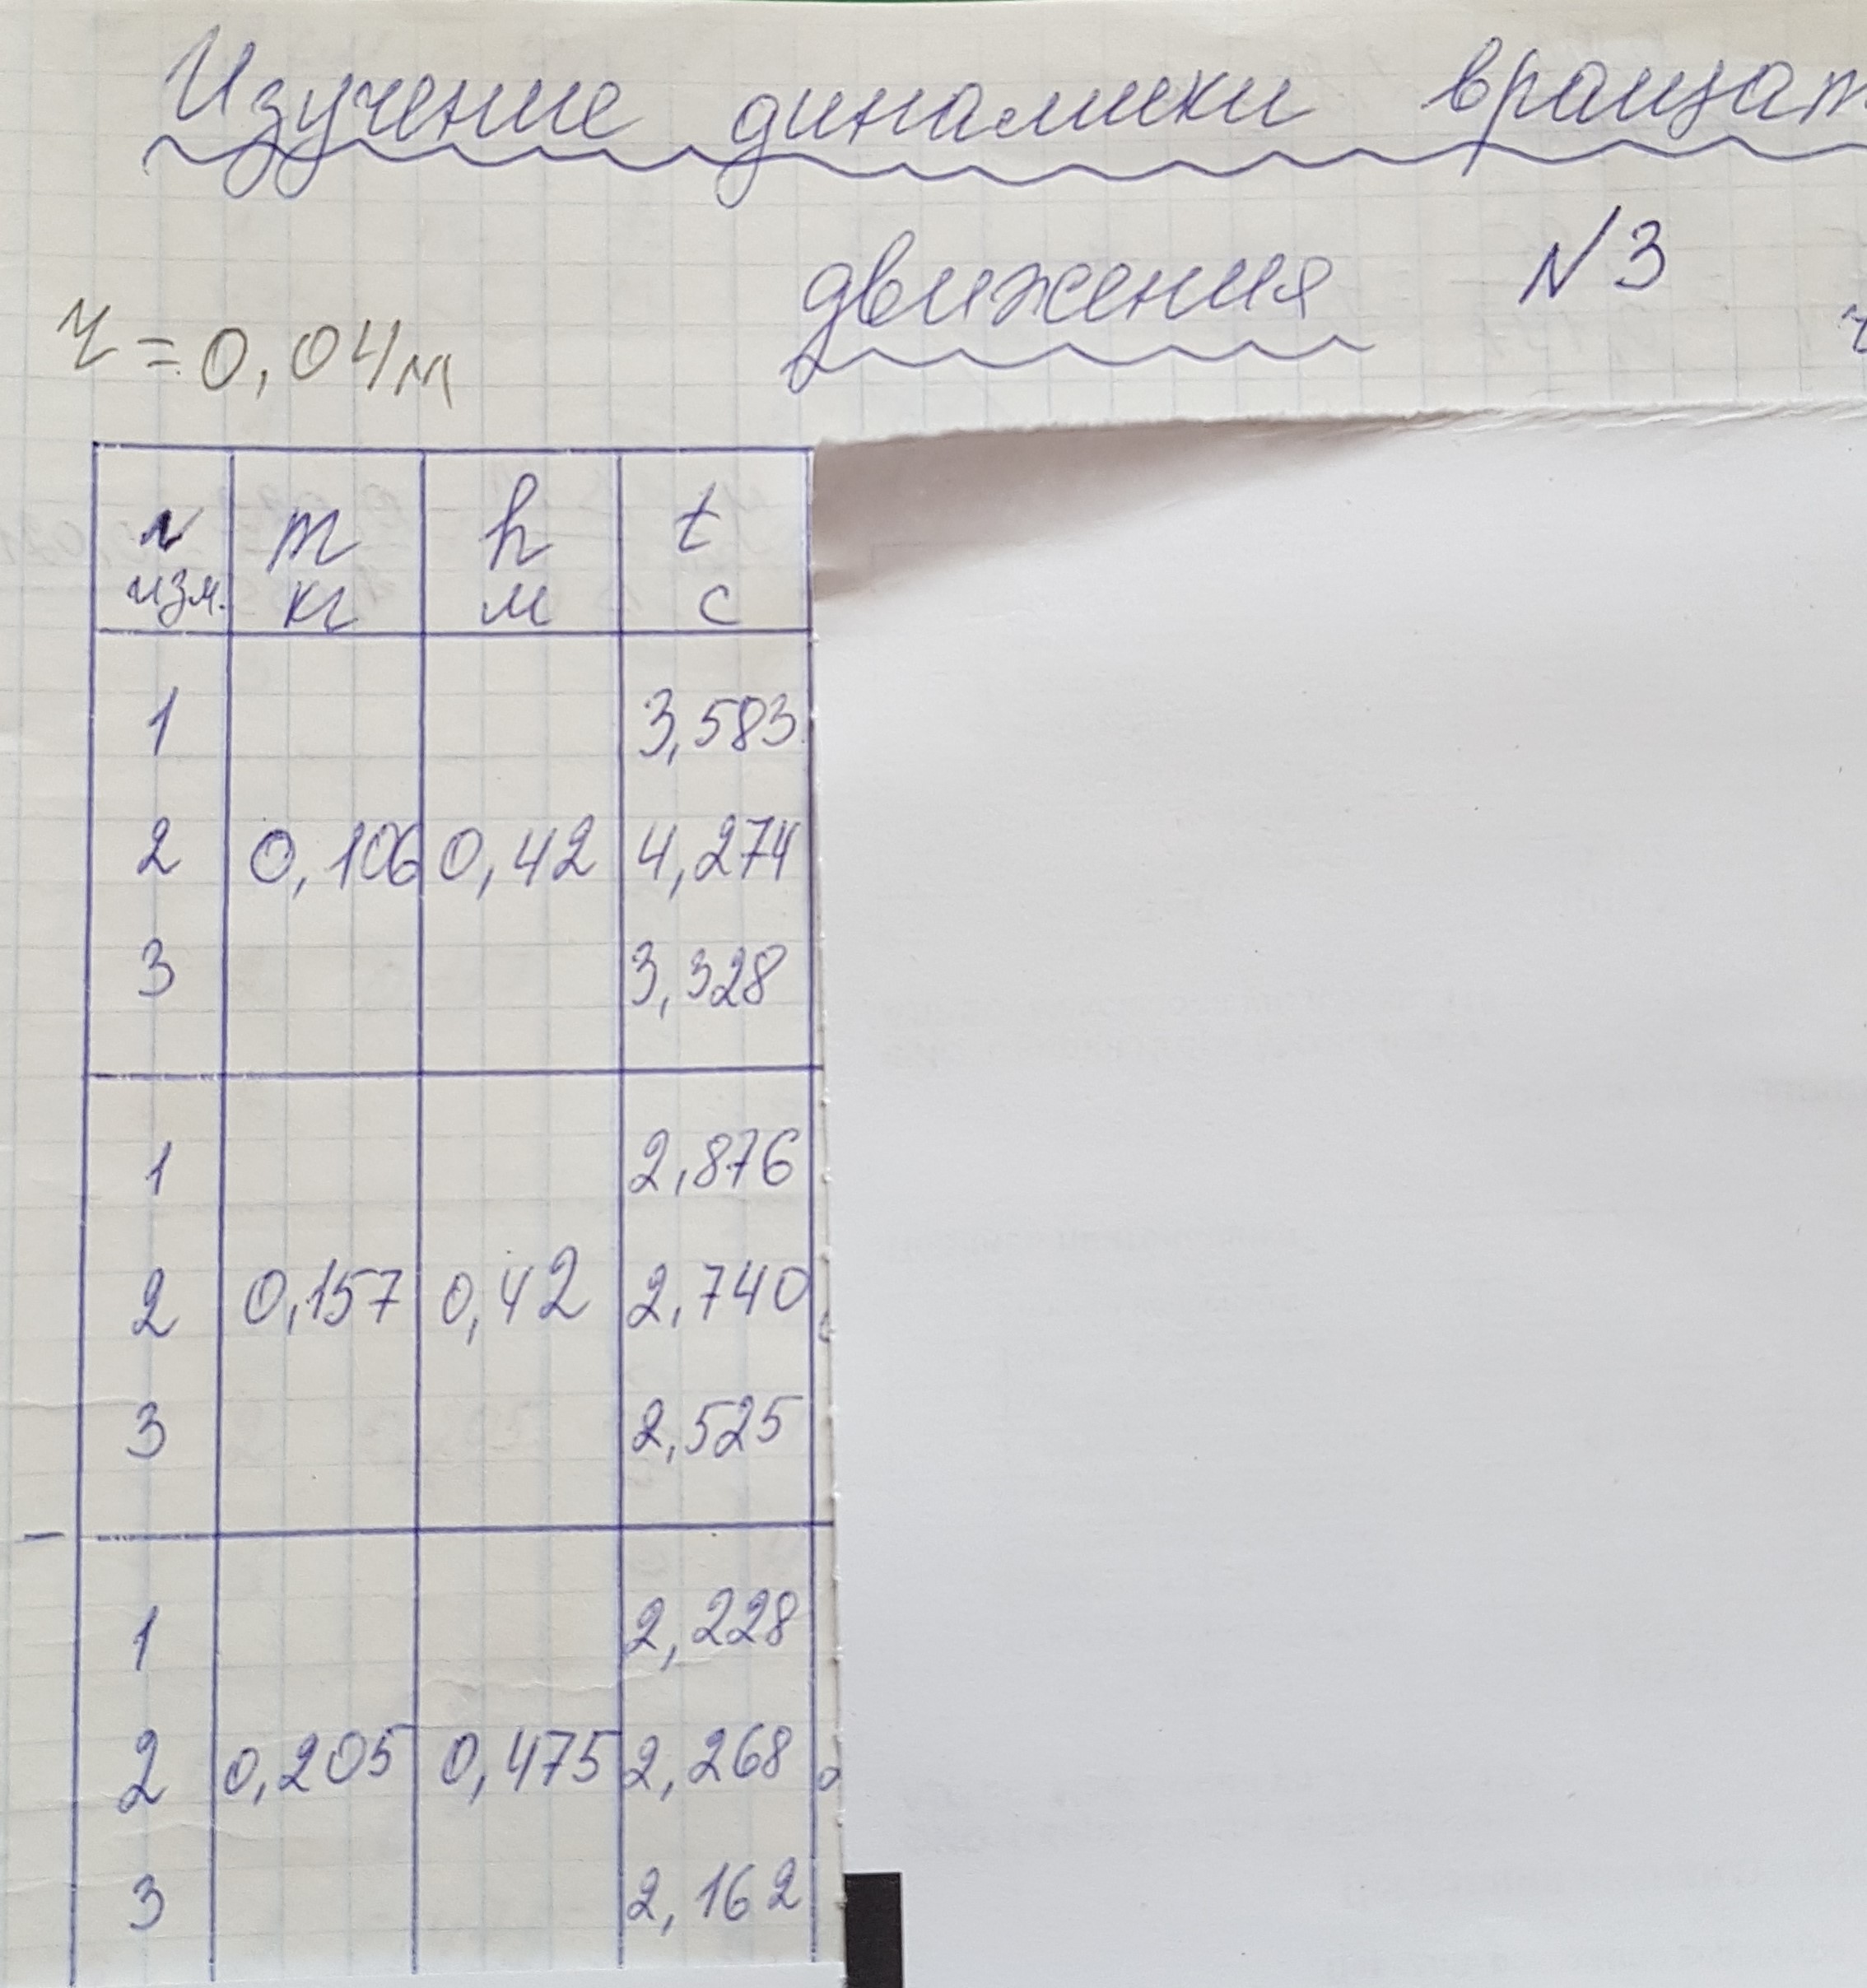 Изучение динамики вращат
движения N3
r = 0,04м
N изм. m кг h м t с
1 3,583
2 0,106 0,42 4,274
3 3,328
1 2,876
2 0,157 0,42 2,740
3 2,525
1 2,228
2 0,205 0,475 2,268
3 2,162